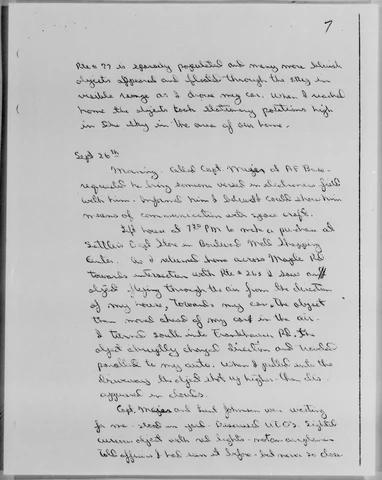 7
Rte # 77 is sparsely populated and many more
objects appeared and floated through the sky in
visible range as I drove my car. When I reached
home the objects took stationary positions high
in the sky in the area of our home.
Sept 26th
Morning. Called Capt. at AF Base -
requested to bring someone versed in electronics field
with him. Informed him I could show him
means of communication with space craft.
Left home at 7 PM to make a purchase at
Store in Boulevard Mall Shopping
Center. As I returned home across Maple Rd
towards intersection with Rte # 263 I saw an
object flying through the air from the direction
of my house, towards my car. The object
then moved ahead of my car in the air.
I turned south into Rd. the
object abruptly changed direction and traveled
parallel to my auto. When I pulled into the
driveway the object shot up higher - then dis-
appeared in clouds.
Capt. and Johnson were waiting
for me - stood in yard. Observed UFO'S. Sighted
object with red lights - not an airplane.
Told officers I had seen it before - but never so close